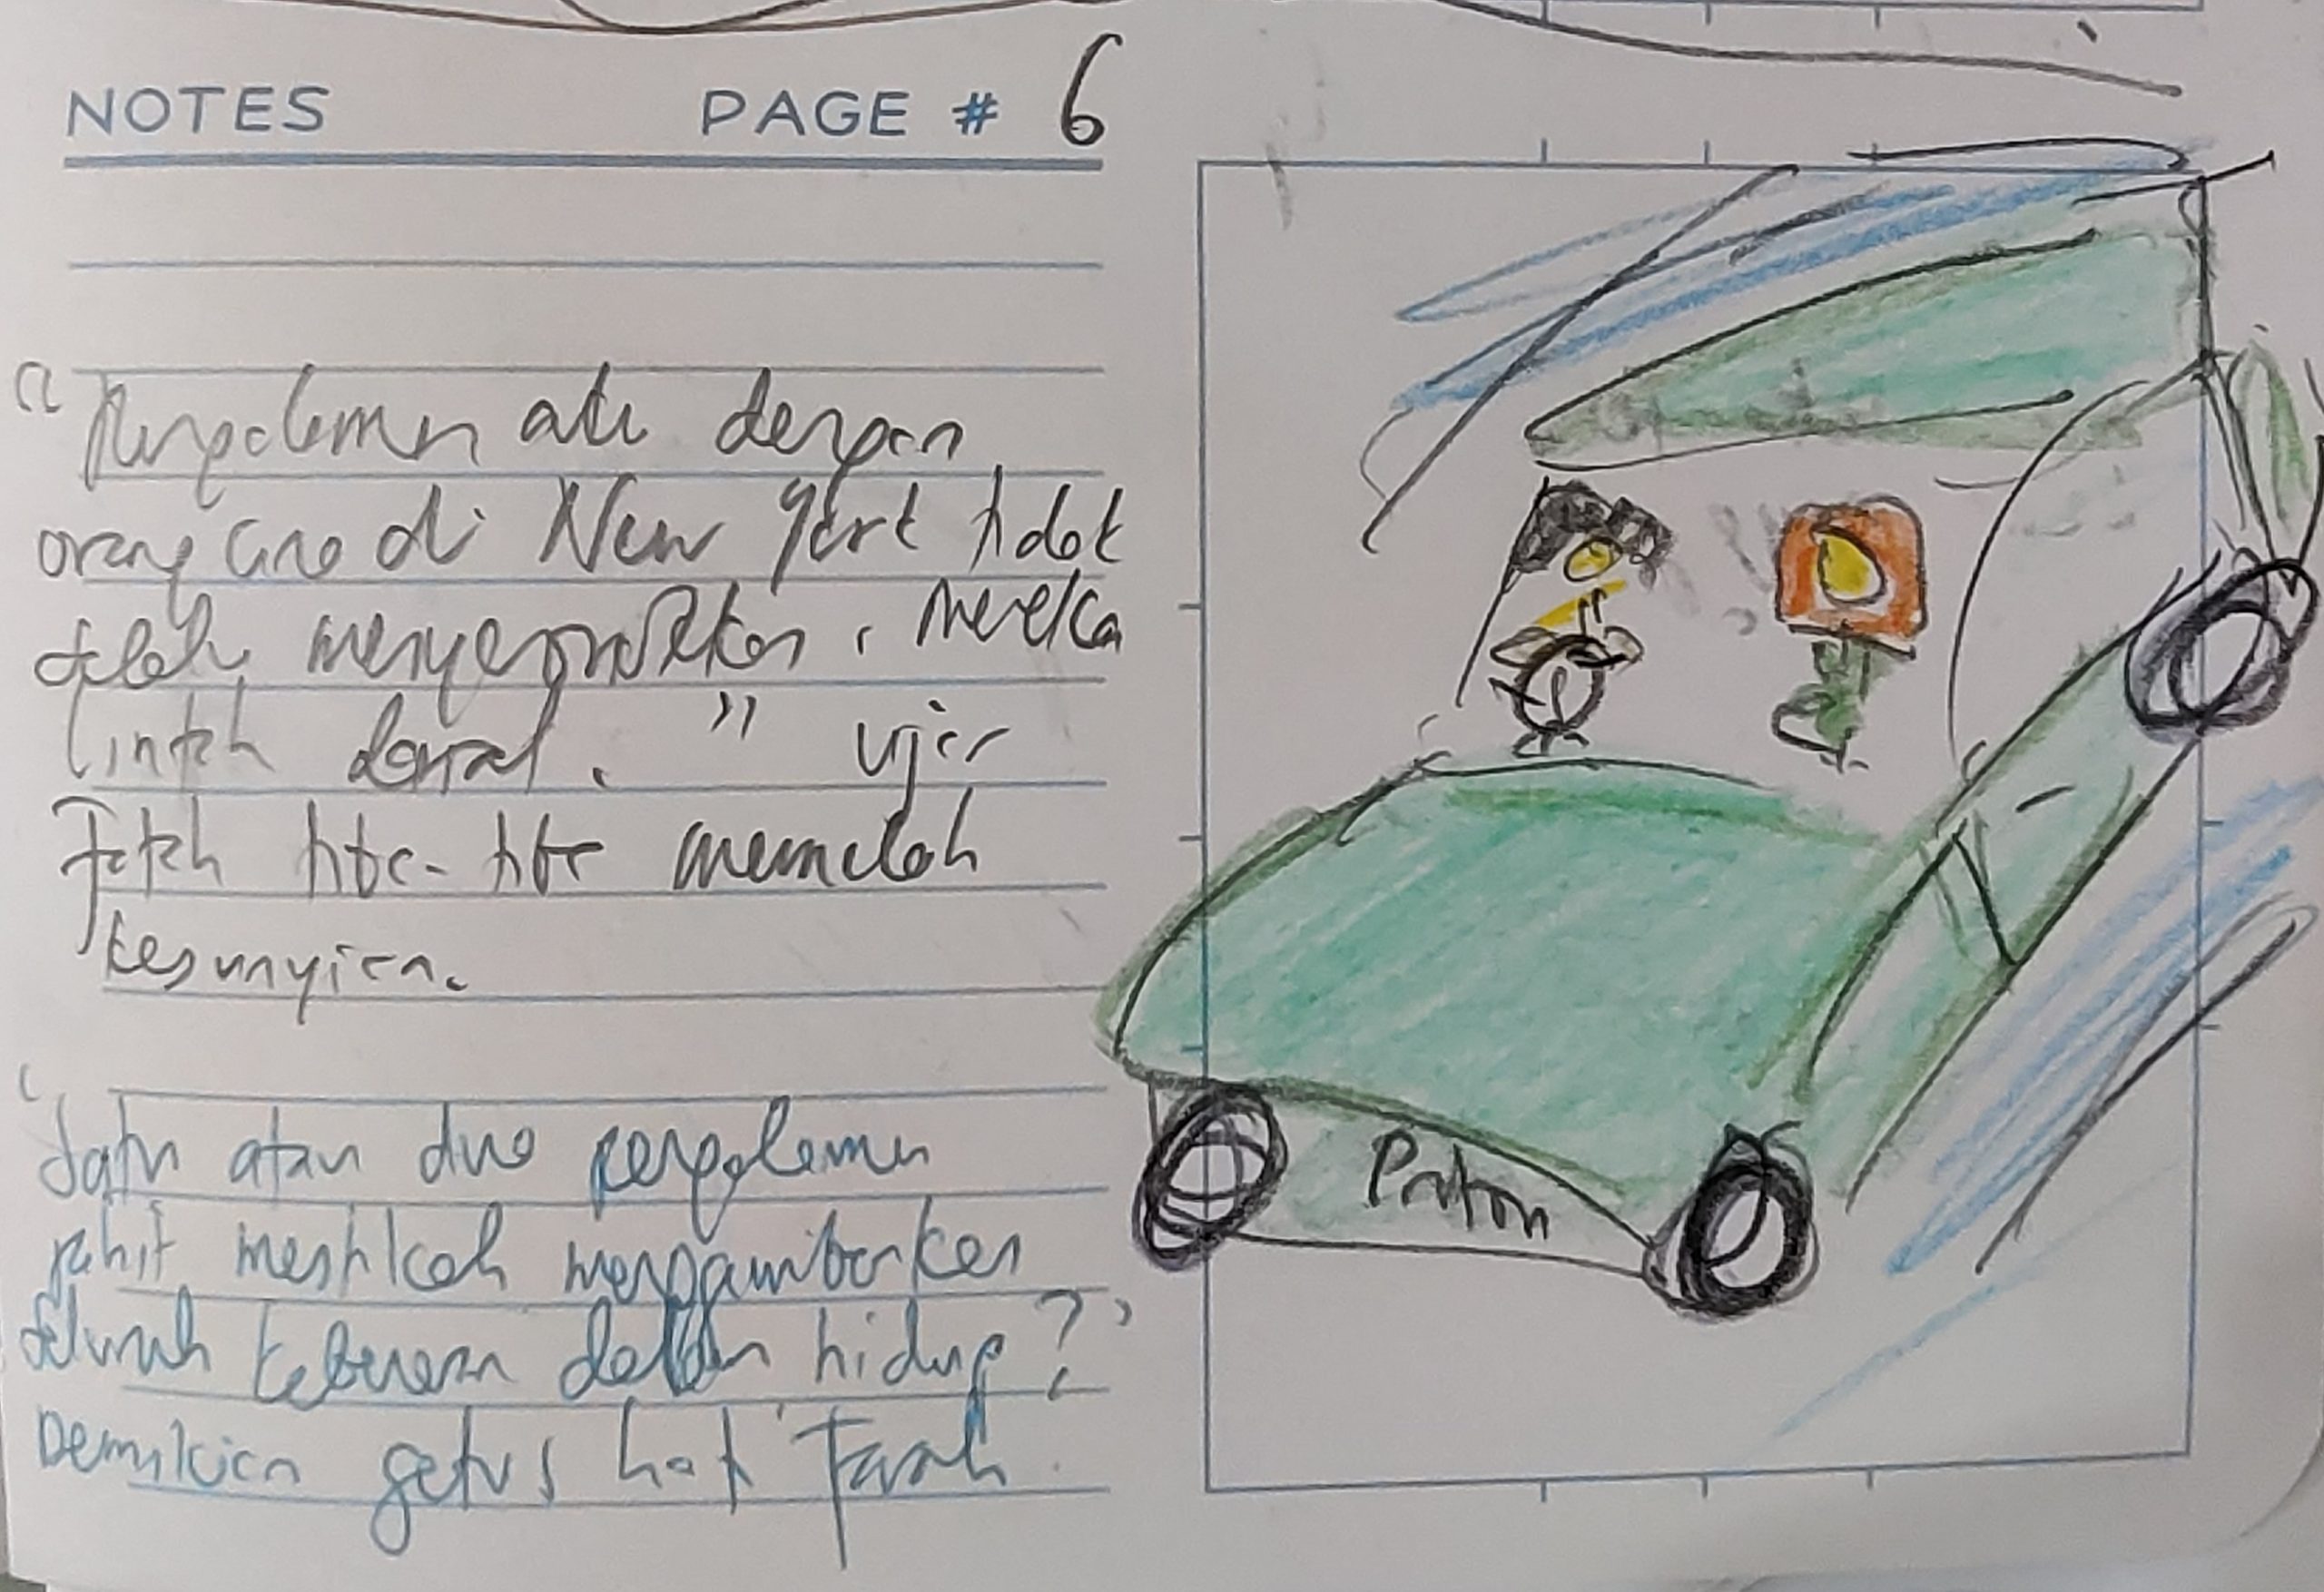 NOTES PAGE # 6
"Pengalaman aku dengan
orang Cina di New York tidak
telah menyeronokkan. Mereka
lintah darat." ujar
Fateh tiba-tiba memecah
kesunyian.
'Satu atau dua pengalaman
pahit mestikah menggambarkan
seluruh kebenaran dalam hidup?'
Demikian getus hati Farah.
Proton